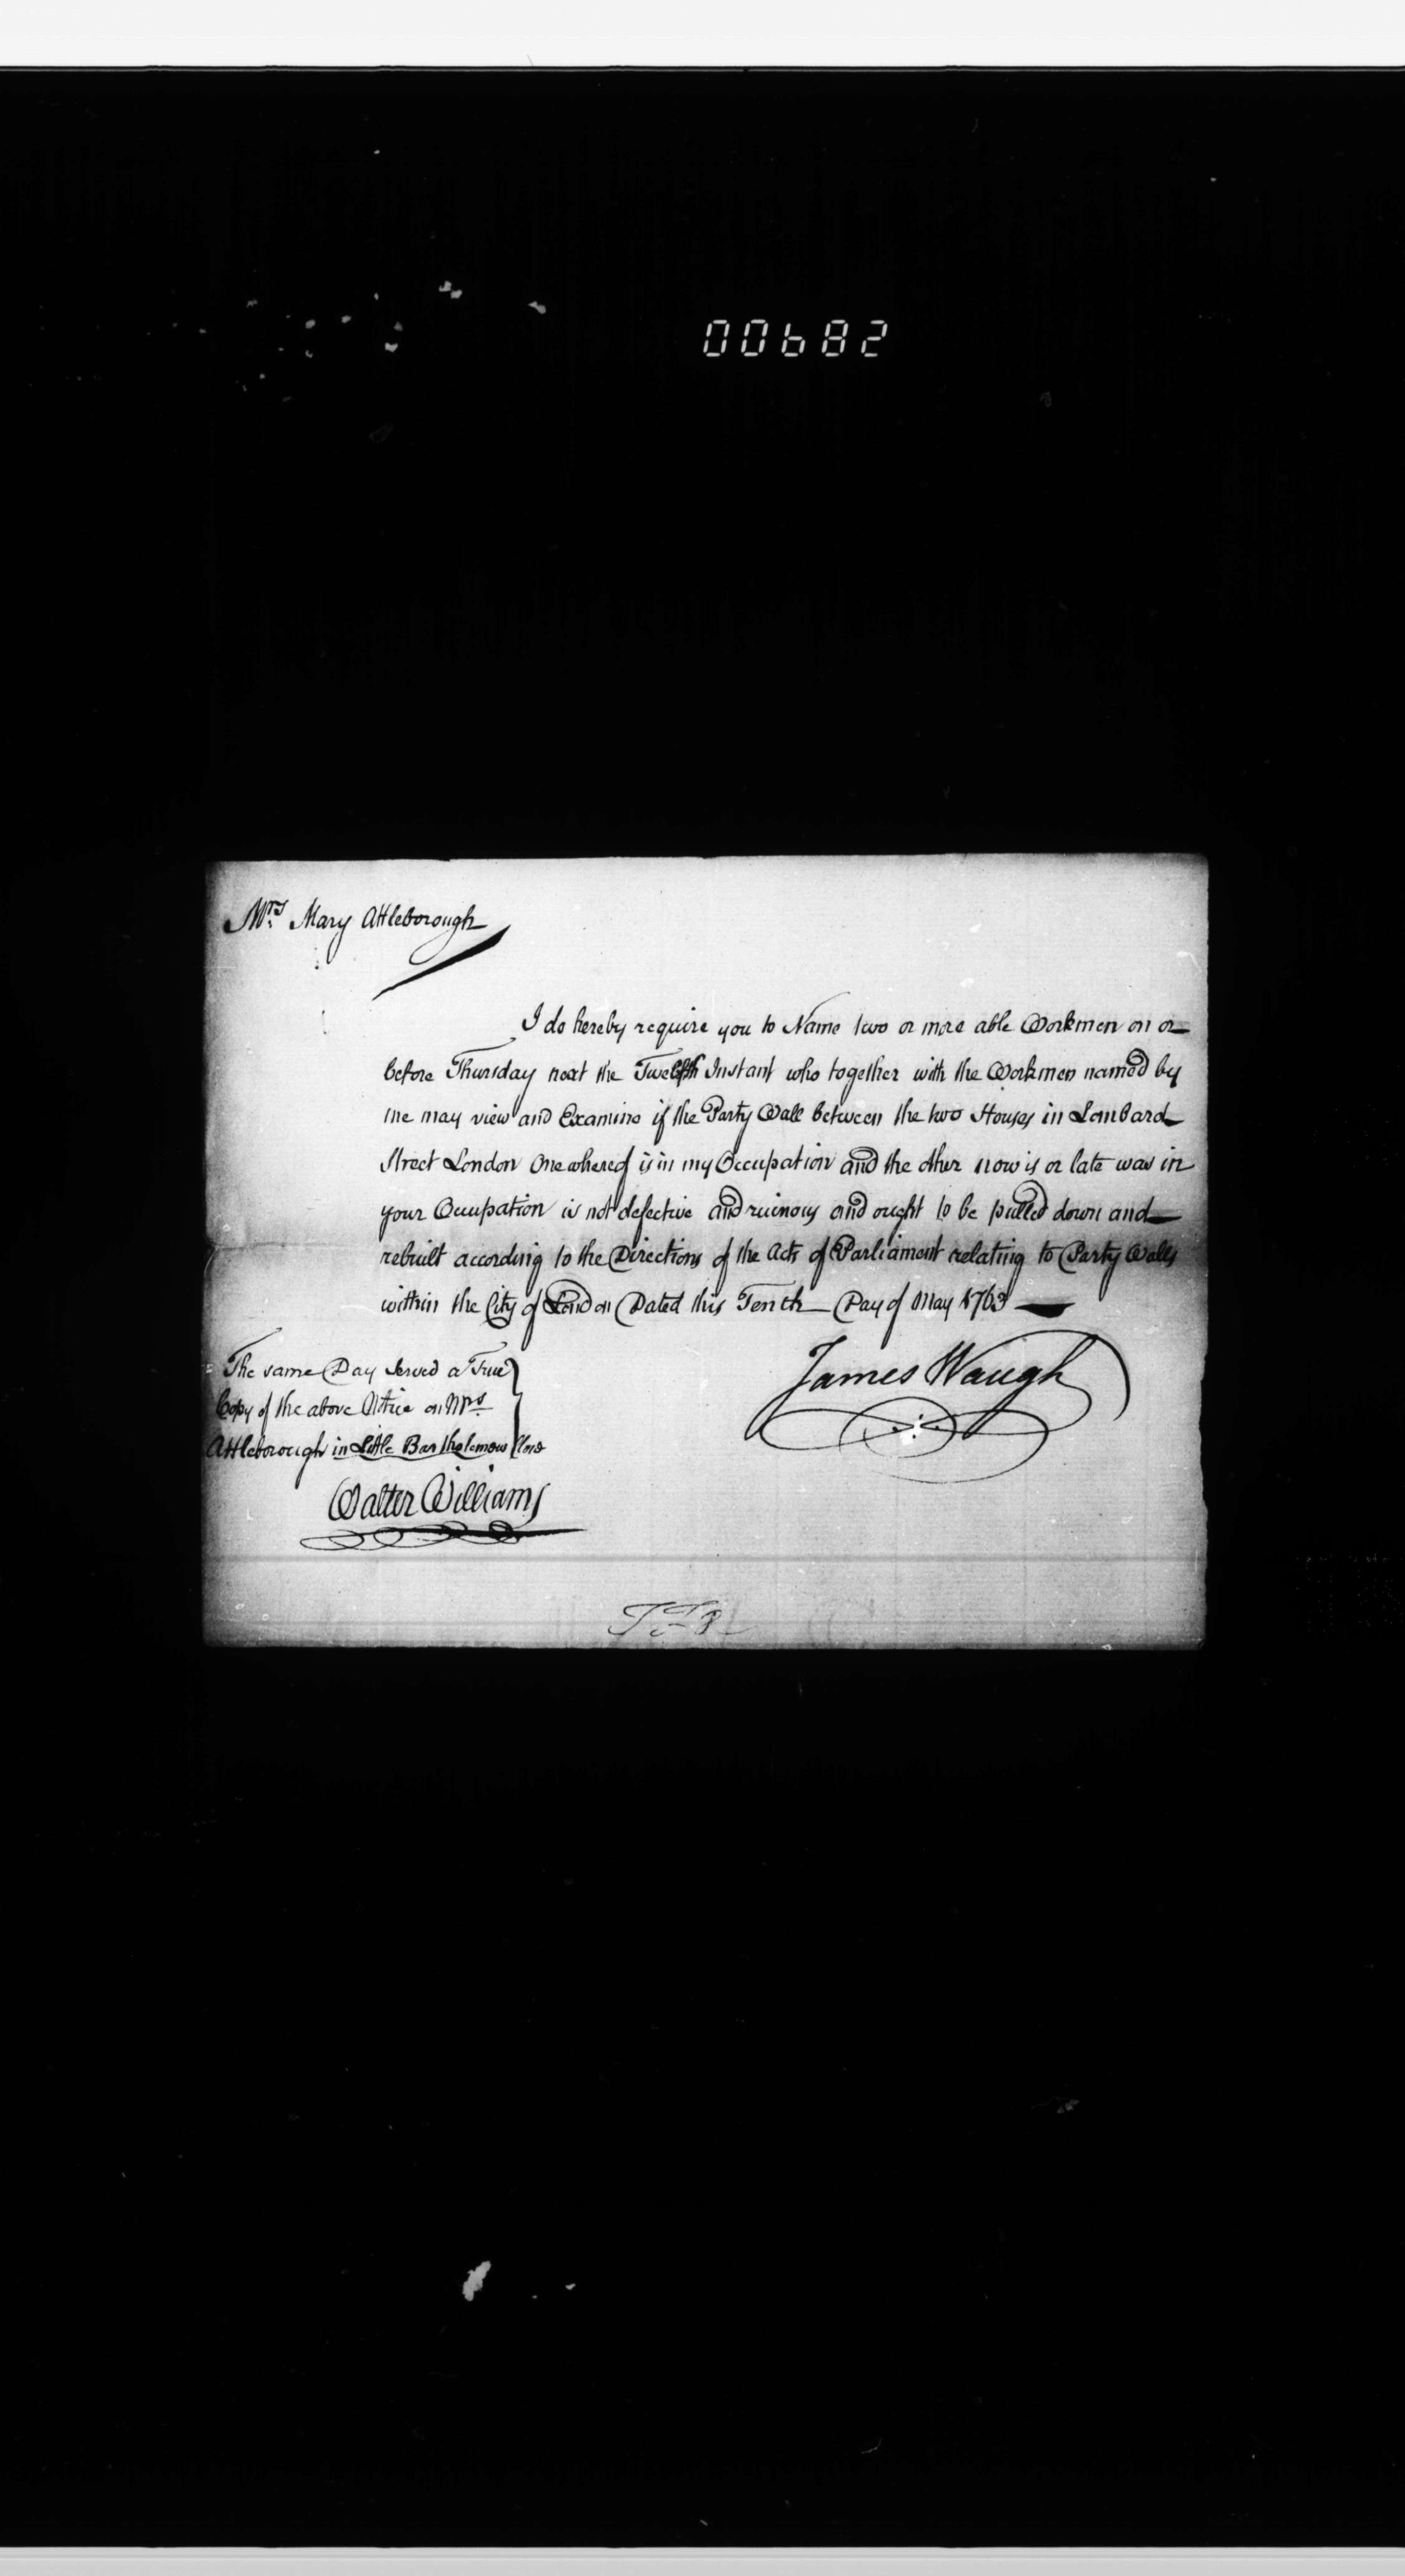 00682
Mrs Mary Attleborough
I do hereby require you to Name two or more able Workmen on or
before Thursday next the Twelfth Instant who together with the Workmen named by
me may view and Examine if the Party Wall between the two Houses in Lombard
Street London One whereof is in my Occupation and the other now is or late was in
your Occupation is not defective and ruinous and ought to be pulled down and
rebuilt according to the Directions of the Acts of Parliament relating to Party Walls
within the City of London Dated this Tenth Day of May 1763
James Waugh
The same Day Served a True
Copy of the above Notice on Mrs
Attleborough in Little Bartholomew Close
Walter Williams